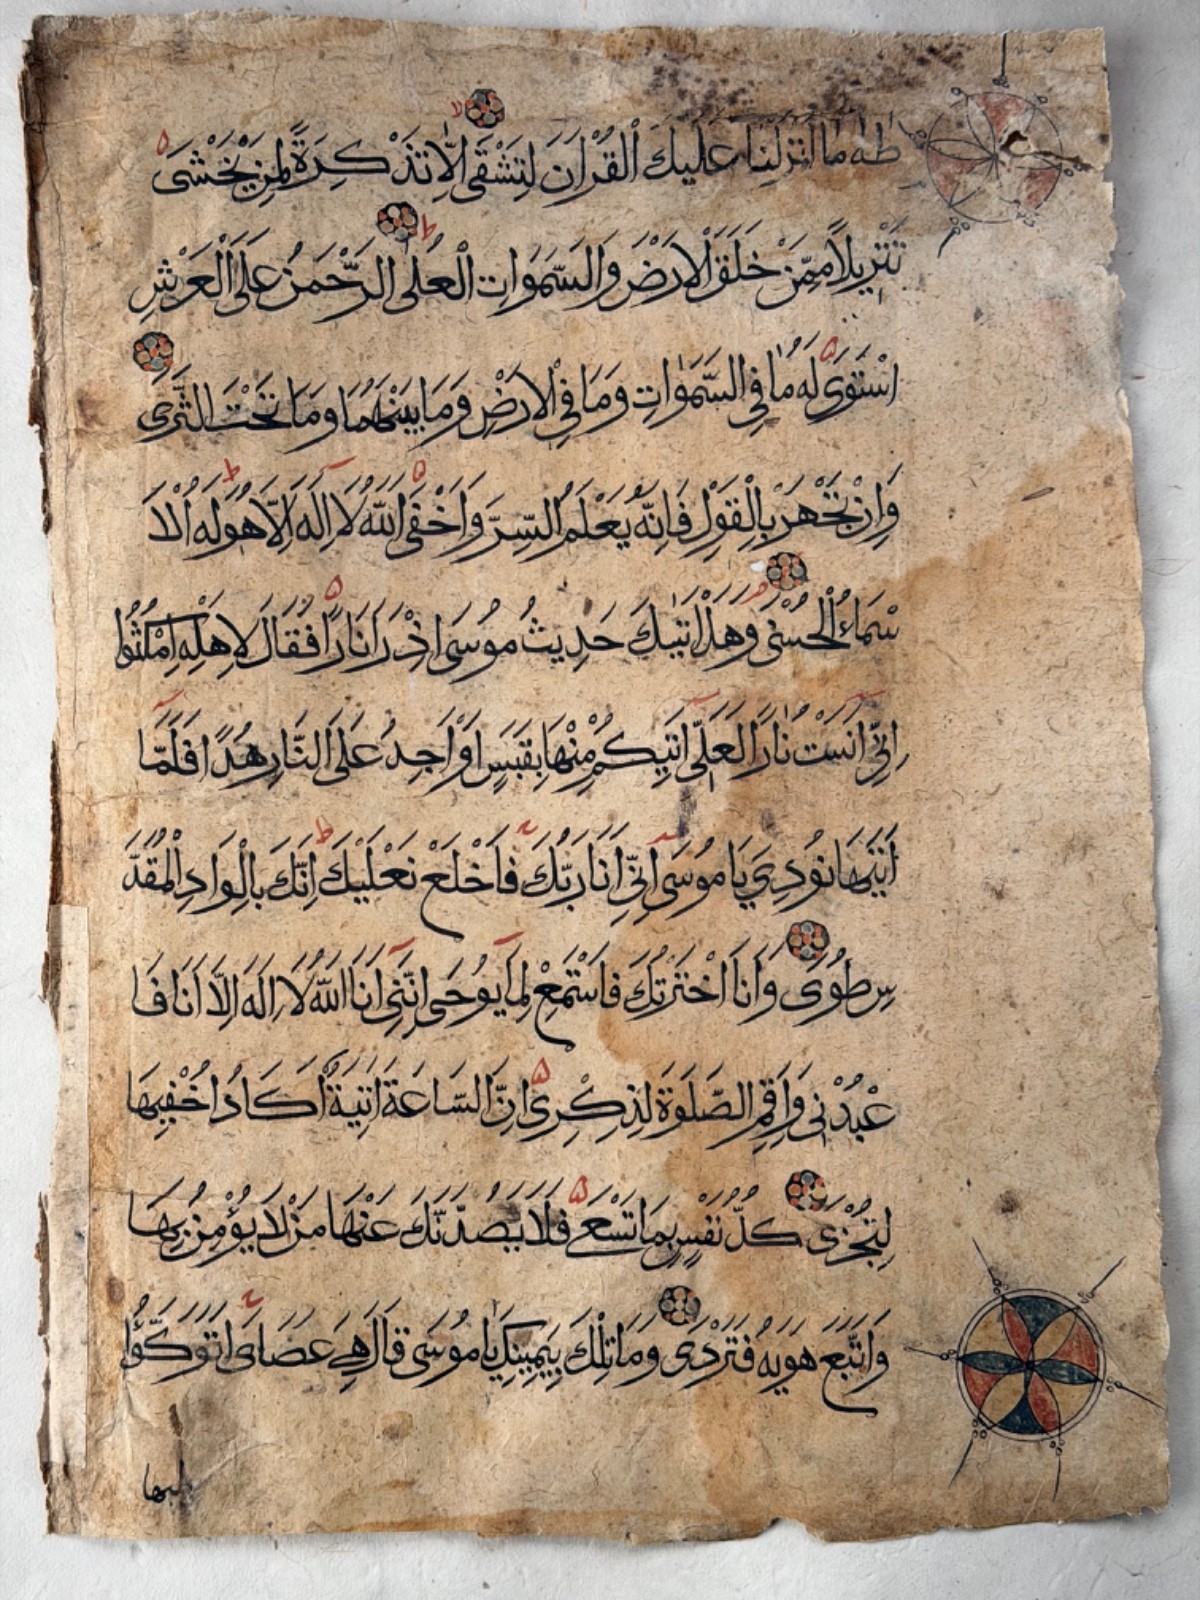 طه ما انزلنا عليك الْقُرْاٰنَ لِتَشْقٰى اِلَّا تَذْكِرَةً لِمَنْ يَخْشَى
تَنْزِيلاً مِمَّنْ خَلَقَ الْاَرْضَ وَالسَّمَوَاتِ الْعُلَى الرَّحْمَنُ عَلَى الْعَرْشِ
اسْتَوَى لَهُ مَا فِي السَّمَوَاتِ وَمَا فِي الْاَرْضِ وَمَا بَيْنَهُمَا وَمَا تَحْتَ الثَّرَى
وَاِنْ تَجْهَرْ بِالْقَوْلِ فَاِنَّهُ يَعْلَمُ السِّرَّ وَاَخْفَى اَللّٰهُ لَا اِلَهَ اِلَّا هُوَ لَهُ الْاَ
سْمَاءُ الْحُسْنَى وَهَلْ اَتٰيكَ حَدِيثُ مُوسَى اِذْ رَاَ نَارًا فَقَالَ لِاَهْلِهِ امْكُثُوا
اِنِّي اَنَسْتُ نَارًا لَعَلِّي اَتِيكُمْ مِنْهَا بِقَبَسٍ اَوْ اَجِدُ عَلَى النَّارِ هُدًا فَلَمَّا
اَتَيهَا نُودِيَ يَا مُوسَى اِنِّي اَنَا رَبُّكَ فَاخْلَعْ نَعْلَيْكَ اِنَّكَ بِالْوَادِ الْمُقَدَّ
سِ طُوَى وَاَنَا اخْتَرْتُكَ فَاسْتَمِعْ لِمَا يُوحَى اِنَّنِي اَنَا اللّٰهُ لَا اِلَهَ اِلَّا اَنَا فَا
عْبُدْنِي وَاَقِمِ الصَّلَوةَ لِذِكْرِى اِنَّ السَّاعَةَ اَتِيَةٌ اَكَادُ اُخْفِيهَا
لِتُجْزَى كُلُّ نَفْسٍ بِمَا تَسْعَى فَلَا يَصُدَّنَّكَ عَنْهَا مَنْ لَا يُؤْمِنُ بِهَا
وَاتَّبَعَ هَوَيهُ فَتَرْدَى وَمَا تِلْكَ بِيَمِينِكَ يَا مُوسَى قَالَ هِيَ عَصَاىَ اَتَوَكَّؤُا
عليها